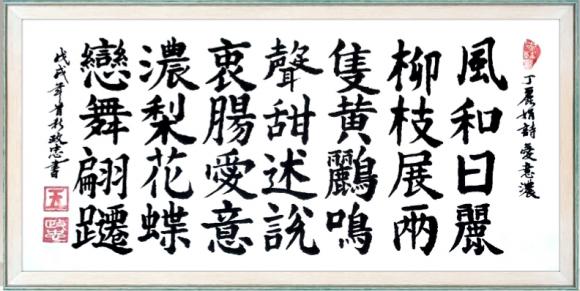 丁麗娟詩 愛意濃
風和日麗
柳枝展兩
隻黃鸝鳴
聲甜述說
衷腸愛意
濃梨花蝶
戀舞翩躚
戊戌年 政忠書